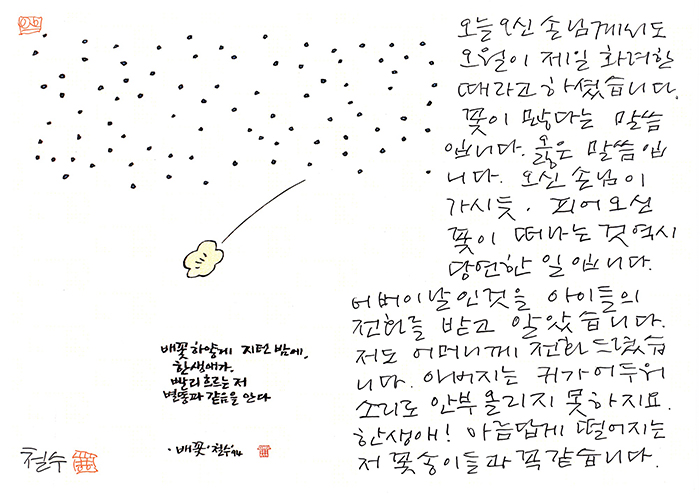 오늘 오신 손님께서도
오월이 제일 화려한
때라고 하셨습니다.
꽃이 많다는 말씀
입니다. 옳은 말씀입
니다. 오신 손님이
가시듯, 피어 오신
꽃이 떠나는 것 역시
당연한 일입니다.
어버이날인 것을 아이들의
전화를 받고 알았습니다.
저도 어머니께 전화드렸습
니다. 아버지는 귀가 어두워
소리로 안부 올리지 못하지요.
한생애! 아름답게 떨어지는
저 꽃송이들과 꼭 같습니다.
배꽃 하얗게 지던 밤에,
한생애가,
빨리 흐르는 저
별똥과 같음을 안다
·배꽃· 철수 '94
철수